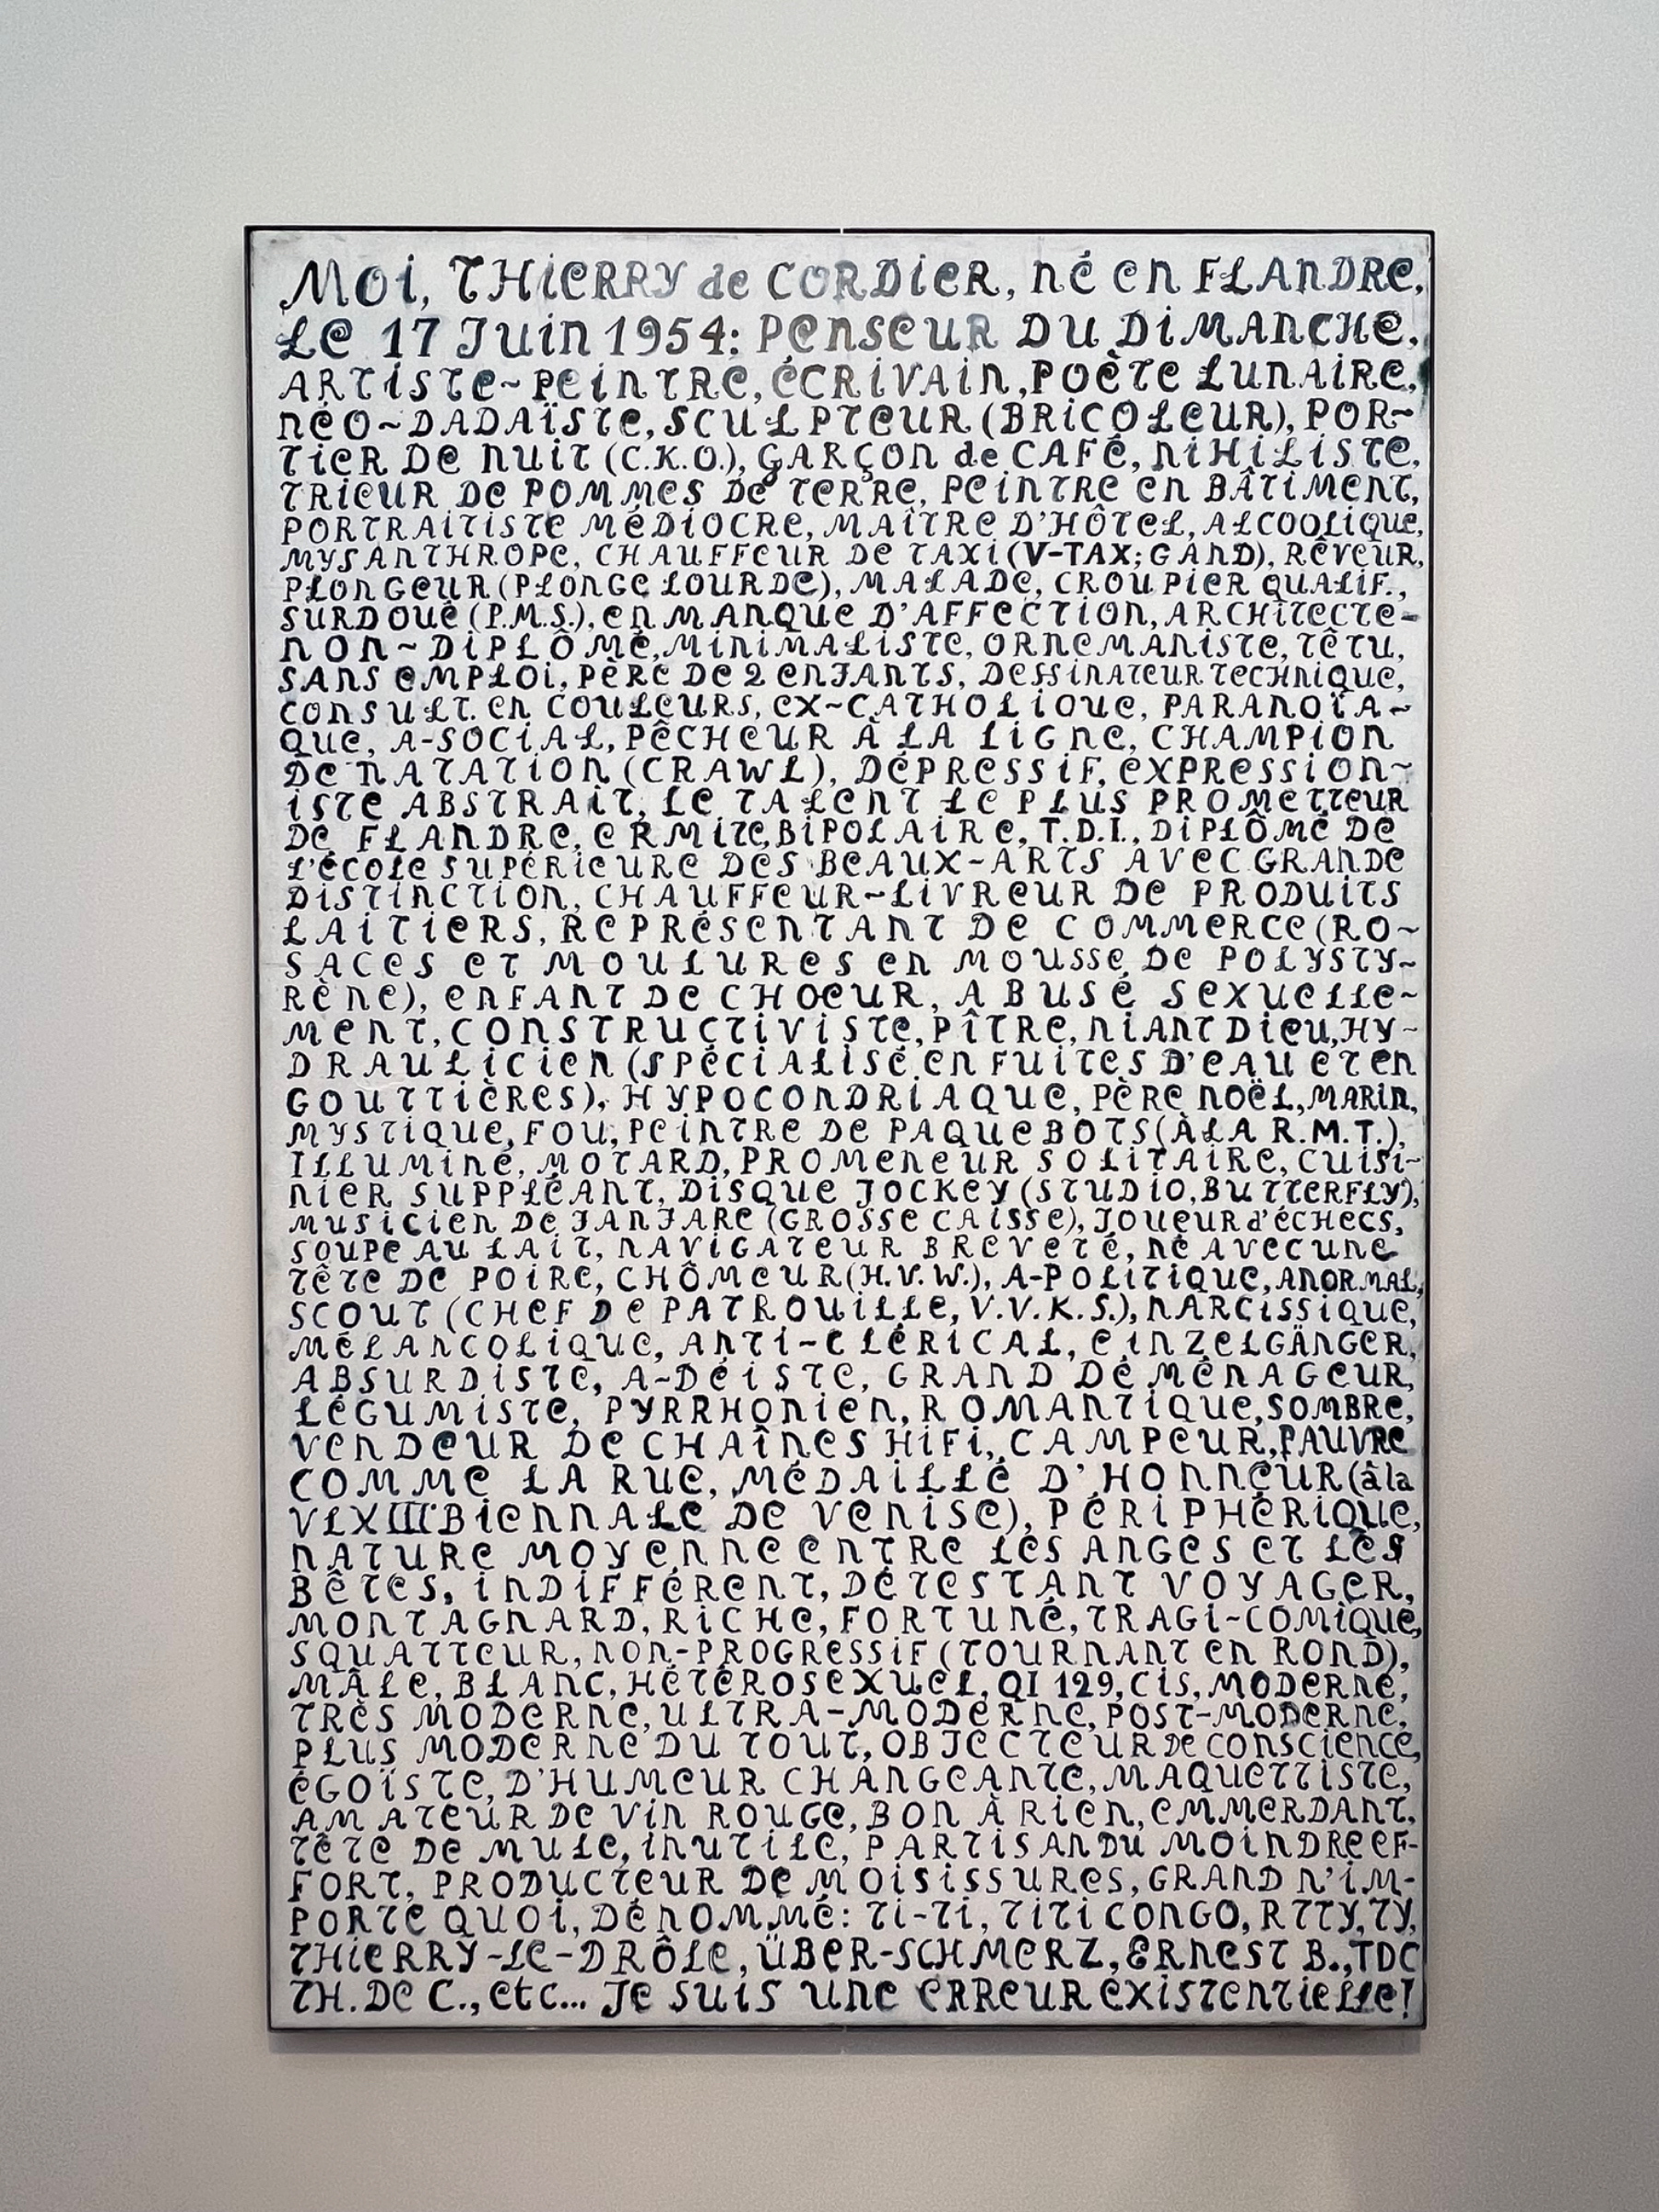 Moi, THiERRY de CORDiER, né en FLANDRE,
Le 17 Juin 1954: PenSeUR DU DiMANCHe,
ARTiSTe~PeinTRe, éCRiVAin, POèTe LUNAiRe,
NéO~DADAïSTe, SCULPTeUR (BRiCOLeUR), POR~
TieR De nUiT (C.K.O.), GARÇOn de CAFé, niHiLiSTe,
TRieUR De POMMeS De TeRRe, PeinTRe en BÂTiMenT,
PORTRAiTiSTe MéDiOCRe, MAîTRe D'HÔTeL, ALCOOLiQUe,
MYSANTHROPe, CHAUFFeUR De TAXi (V-TAX; GAnD), RêVeUR,
PLOnGeUR (PLOnGe LOURDe), MALADe, CROUPieR QUALiF.,
SURDOUé (P.M.S.), en MAnQUe D'AFFeCTiOn, ARCHiTeCTe-
nOn~DiPLÔMé, MiniMALiSTe, ORneMAniSTe, TêTU,
SAnS eMPLOi, PèRe De 2 enFAnTS, DeSSinATeUR TeCHniQUe,
COnSULT. en COULeURS, eX~CATHOLiQUe, PARAnOïA~
QUe, A-SOCiAL, PêCHeUR À LA LiGne, CHAMPiOn
De nATATiOn (CRAWL), DéPReSSiF, eXPReSSiOn~
iSTe ABSTRAiT, Le TALenT Le PLUS PROMeTTeUR
De FLAnDRe, eRMiTe, BiPOLAiRe, T.D.I., DiPLÔMé De
L'éCOLe SUPéRieURe DeS BeAUX-ARTS AVeC GRAnDe
DiSTinCTiOn, CHAUFFeUR~LiVReUR De PRODUiTS
LAiTieRS, RePRéSenTAnT De COMMeRCe (RO~
SACeS eT MOULUReS en MOUSSe De POLYSTY~
Rène), enFAnT De CHOeUR, ABUSé SeXUeLLe~
MenT, COnSTRUCTiViSTe, PîTRe, niAnT Dieu, HY~
DRAULiCien (SPéCiALiSé en FUiTeS D'eAU eT en
GOUTTièReS), HYPOCOnDRiAQUe, PèRe nOëL, MARin,
MYSTiQUe, FOU, PeinTRe De PAQUeBOTS (À LA R.M.T.),
iLLUMiné, MOTARD, PROMeneUR SOLiTAiRe, CUiSi~
nieR SUPPLéAnT, DiSQUe JOCKeY (STUDiO, BUTTeRFLY),
MUSiCien De FAnFARe (GROSSe CAiSSe), JOUeUR d'éCHeCS,
SOUPe AU LAiT, nAViGATeUR BReVeTé, né AVeC Une
TêTe De POiRe, CHÔMeUR (H.V.W.), A-POLiTiQUe, AnORMAL,
SCOUT (CHeF De PATROUiLLe, V.V.K.S.), nARCiSSiQUe,
MéLAnCOLiQUe, AnTi~CLéRiCAL, einZeLGÄnGeR,
ABSURDiSTe, A~DéiSTe, GRAnD DéMénAGeUR,
LéGUMiSTe, PYRRHOnien, ROMAnTiQUe, SOMBRe,
VenDeUR De CHAîneS HiFi, CAMPeUR, PAUVRe
COMMe LA RUe, MéDAiLLé D'HOnneUR (à la
VLXIII BiennALe De VeniSe), PéRiPHéRiQUe,
nATURe MOYenne enTRe LeS AnGeS eT LeS
BêTeS, inDiFFéRenT, DéTeSTAnT VOYAGeR,
MOnTAGnARD, RiCHe, FORTUné, TRAGi~COMiQUe,
SQUATTeUR, nOn-PROGReSSiF (TOURnAnT en ROnD),
MÂLe, BLAnC, HéTéROSeXUeL, QI 129, CiS, MODeRne,
TRèS MODeRne, ULTRA-MODeRne, POST-MODeRne,
PLUS MODeRne DU TOUT, OBJeCTeUR De COnSCienCe,
éGOïSTe, D'HUMeUR CHAnGeAnTe, MAQUeTTiSTe,
AMATeUR De Vin ROUGe, BOn À Rien, eMMeRDAnT,
TêTe De MULe, inUTiLe, PARTiSAn DU MOinDRe eF-
FORT, PRODUCTeUR De MOiSiSSUReS, GRAnD n'iM-
PORTe QUOi, DénOMMé: Ti-Ti, TiTi COnGO, RTTY, TY,
THieRRY-Le-DRÔLe, ÜBeR-SCHMeRZ, ERneST B., TDC
TH. De C., etc... Je SUiS Une eRReUR eXiSTenTieLLe!